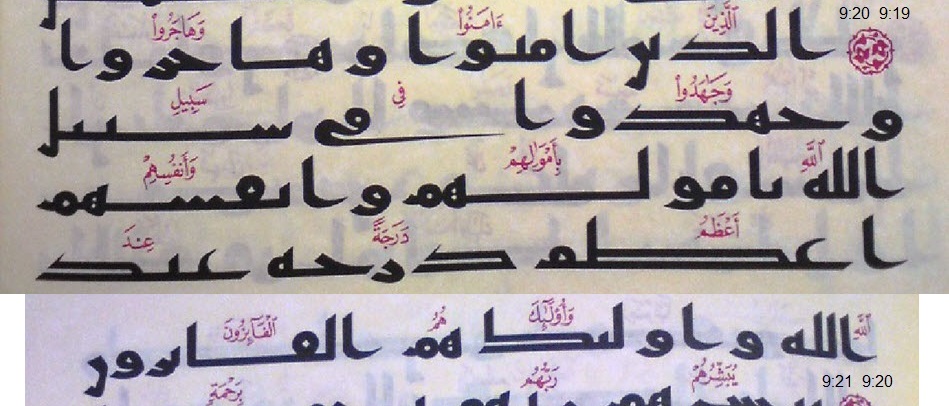 9:20 9:19
ٱلَّذِينَ ءَامَنُوا۟ وَهَاجَرُوا۟
الذين امنوا وهاجروا
وَجَٰهَدُوا۟ فِى سَبِيلِ
وجهدوا في سبيل
ٱللَّهِ بِأَمْوَٰلِهِمْ وَأَنفُسِهِمْ
الله بامولهم وانفسهم
أَعْظَمُ دَرَجَةً عِندَ
اعظم درجه عند
ٱللَّهِ وَأُو۟لَٰٓئِكَ هُمُ ٱلْفَآئِزُونَ
الله واولئك هم الفايزون
9:21 9:20
يُبَشِّرُهُمْ رَبُّهُم بِرَحْمَةٍ